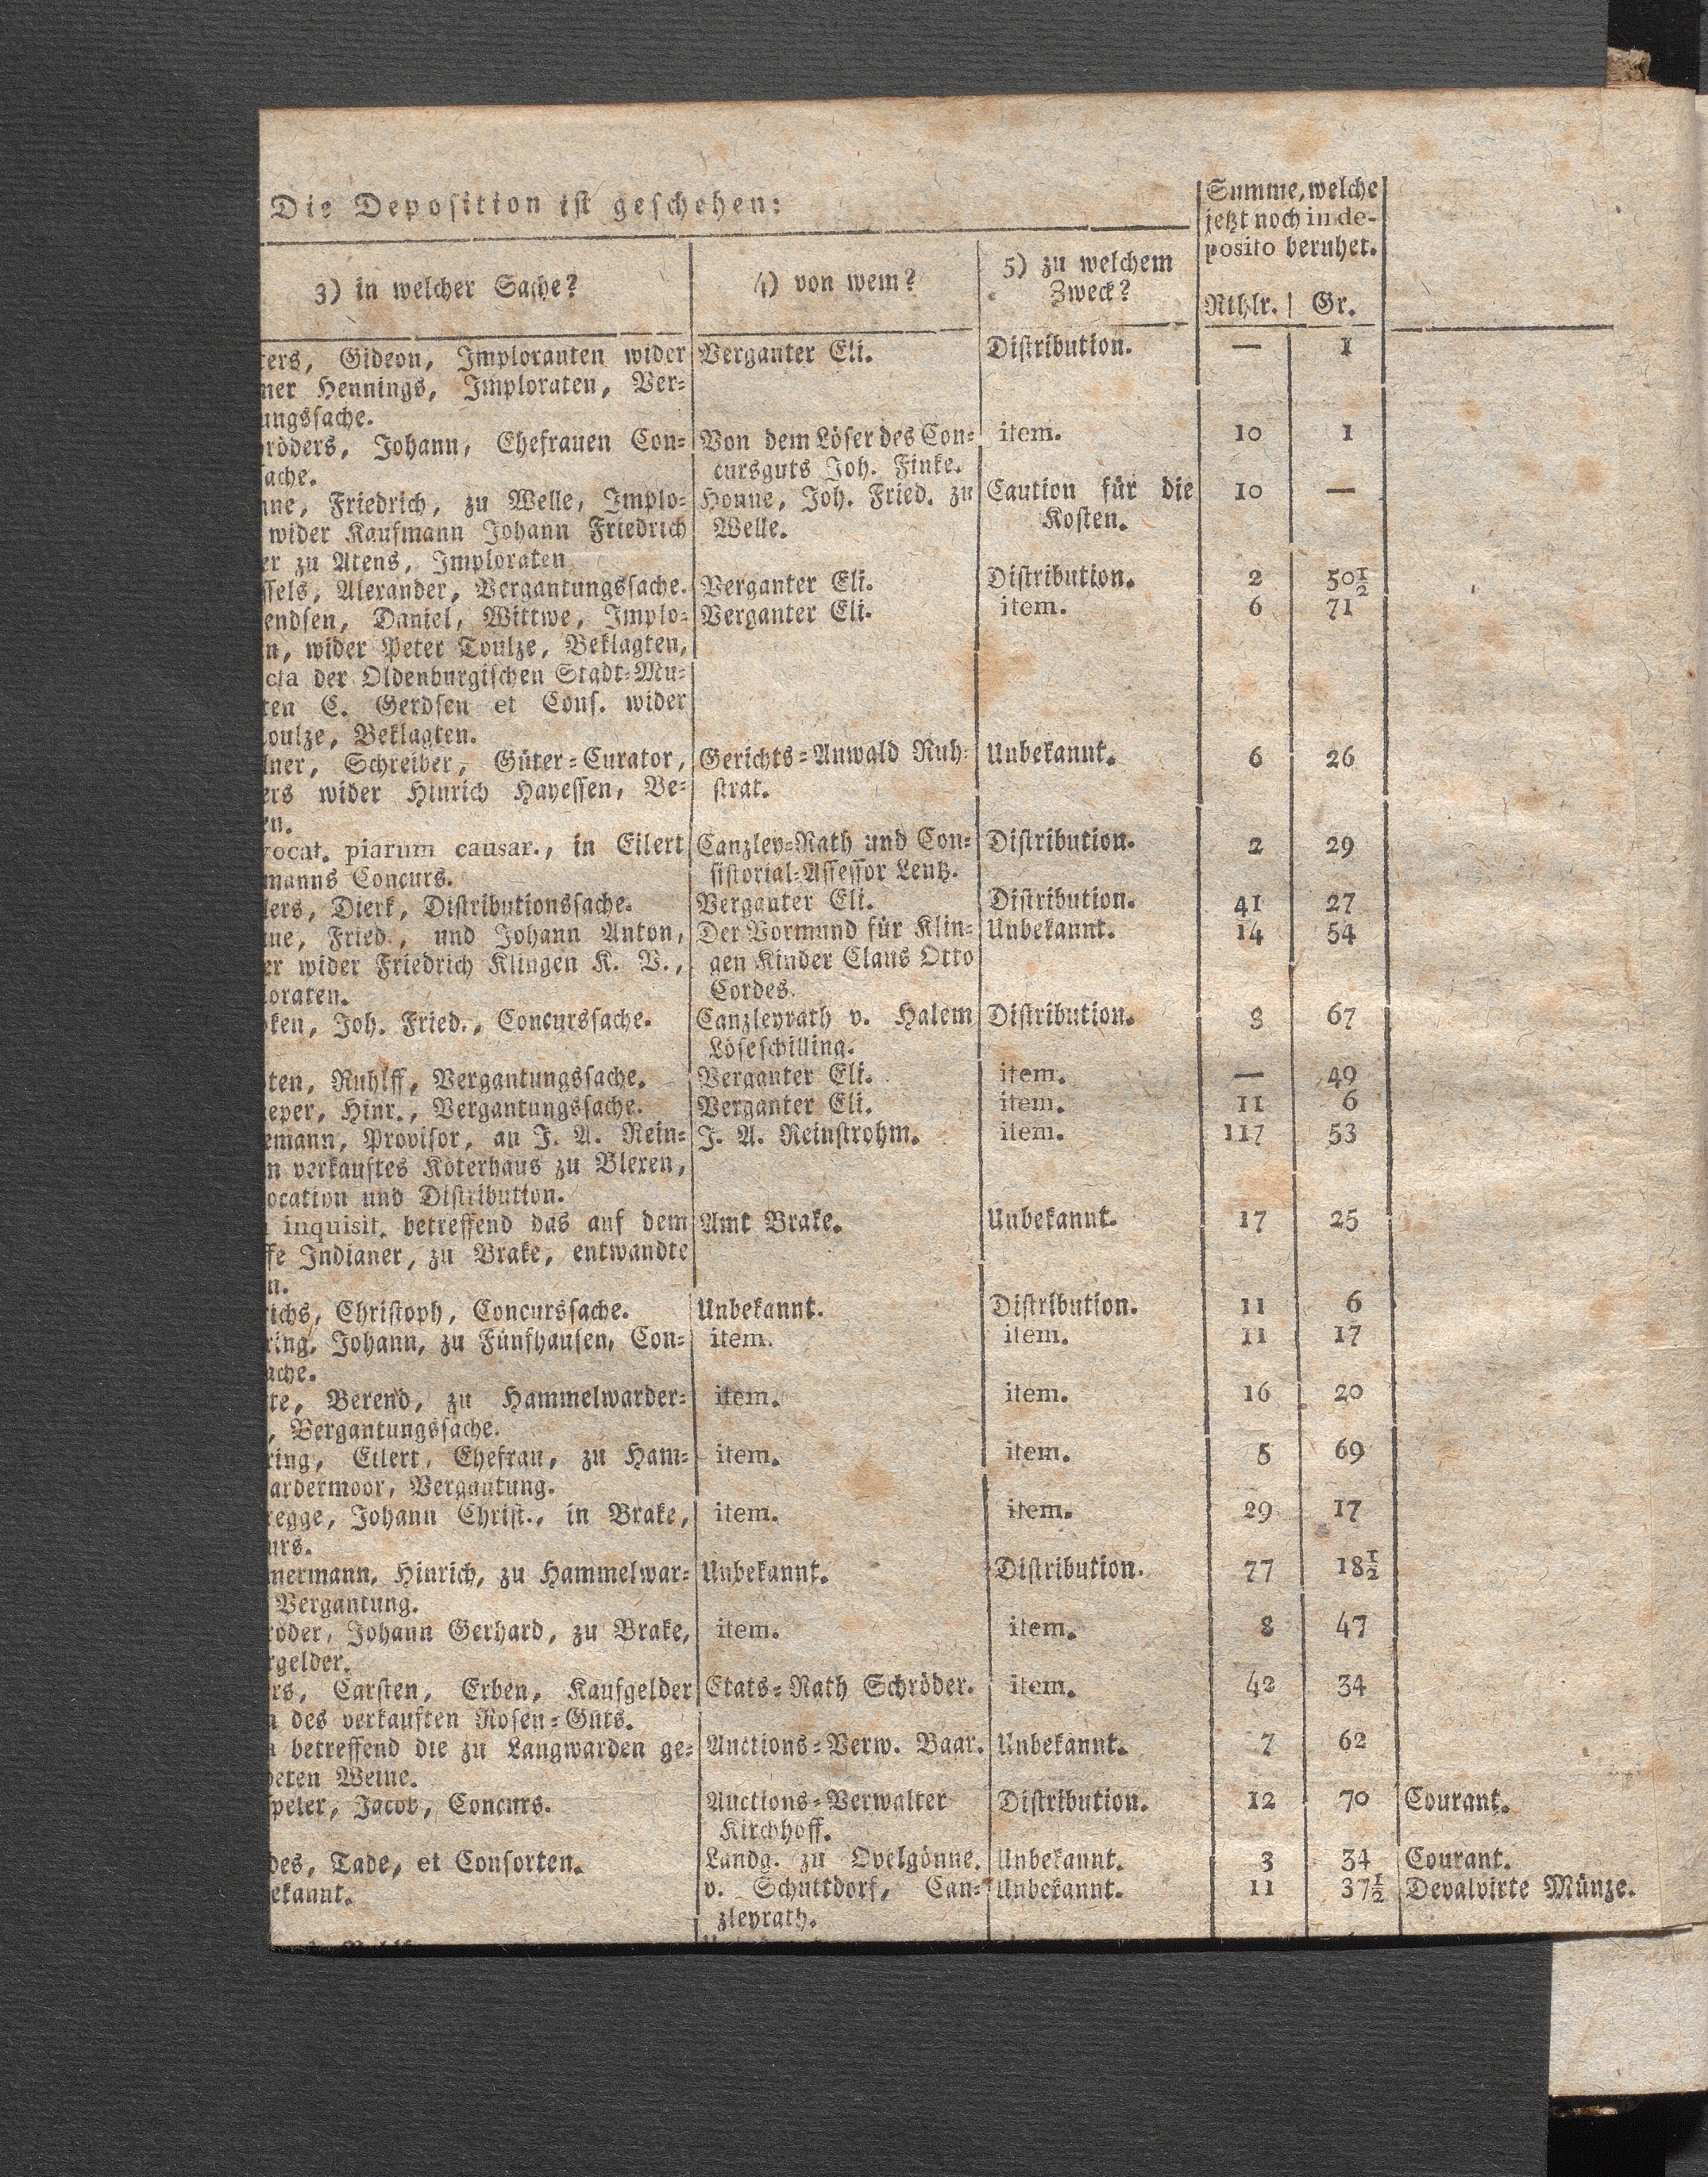 Die Deposition ist geschehen:
Summe, welche
jetzt noch in de-
posito beruhet.
3) in welcher Sache?
4) von wem?
5) zu welchem
Zweck?
Rthlr. Gr.
ters, Gideon, Imploranten wider Verganter Eli. Distribution. — 1
ner Hennings, Imploraten, Ver-
ungssache.
röders, Johann, Ehefrauen Con- Von dem Löser des Con- item. 10 1
sache. cursguts Joh. Finke.
nne, Friedrich, zu Welle, Implo- Honne, Joh. Fried. zu Caution für die 10 —
wider Kaufmann Johann Friedrich Welle. Kosten.
er zu Atens, Imploraten
ssels, Alexander, Vergantungssache. Verganter Eli. Distribution. 2 50½
endsen, Daniel, Wittwe, Implo- Verganter Eli. item. 6 71
n, wider Peter Toulze, Beklagten,
cta der Oldenburgischen Stadt-Mu-
ten C. Gerdsen et Cons. wider
oulze, Beklagten.
lner, Schreiber, Güter-Curator, Gerichts-Anwald Ruh- Unbekannt. 6 26
ers wider Hinrich Hayessen, Be- strat.
en.
vocat. piarum causar., in Eilert Canzley-Rath und Con- Distribution. 2 29
manns Concurs. sistorial-Assessor Lentz.
lers, Dierk, Distributionssache. Verganter Eli. Distribution. 41 27
ne, Fried., und Johann Anton, Der Vormund für Klin- Unbekannt. 14 54
er wider Friedrich Klingen K. V., gen Kinder Claus Otto
loraten. Cordes.
ken, Joh. Fried., Concurssache. Canzleyrath v. Halem Distribution. 3 67
Löseschilling.
ten, Ruhlff, Vergantungssache. Verganter Eli. item. — 49
eper, Hinr., Vergantungssache. Verganter Eli. item. 11 6
emann, Provisor, an J. A. Rein- J. A. Reinstrohm. item. 117 53
n verkauftes Köterhaus zu Blexen,
ocation und Distribution.
inquisit. betreffend das auf dem Amt Brake. Unbekannt. 17 25
ffe Indianer, zu Brake, entwandte
n.
richs, Christoph, Concurssache. Unbekannt. Distribution. 11 6
ring, Johann, zu Fünfhausen, Con- item. item. 11 17
ache.
te, Berend, zu Hammelwarder- item. item. 16 20
, Vergantungssache.
ring, Eilert, Ehefrau, zu Ham- item. item. 5 69
ardermoor, Vergantung.
regge, Johann Christ., in Brake, item. item. 29 17
urs.
mermann, Hinrich, zu Hammelwar- Unbekannt. Distribution. 77 18½
Vergantung.
röder, Johann Gerhard, zu Brake, item. item. 8 47
rgelder.
rs, Carsten, Erben, Kaufgelder Etats-Rath Schröder. item. 42 34
n des verkauften Rosen-Guts.
betreffend die zu Langwarden ge- Auctions-Verw. Baar. Unbekannt. 7 62
deten Weine.
speler, Jacob, Concurs. Auctions-Verwalter Distribution. 12 70 Courant.
Kirchhoff.
des, Tade, et Consorten. Landg. zu Ovelgönne. Unbekannt. 3 34 Courant.
ekannt. v. Schuttdorf, Can- Unbekannt. 11 37½ Devalvirte Münze.
zleyrath.